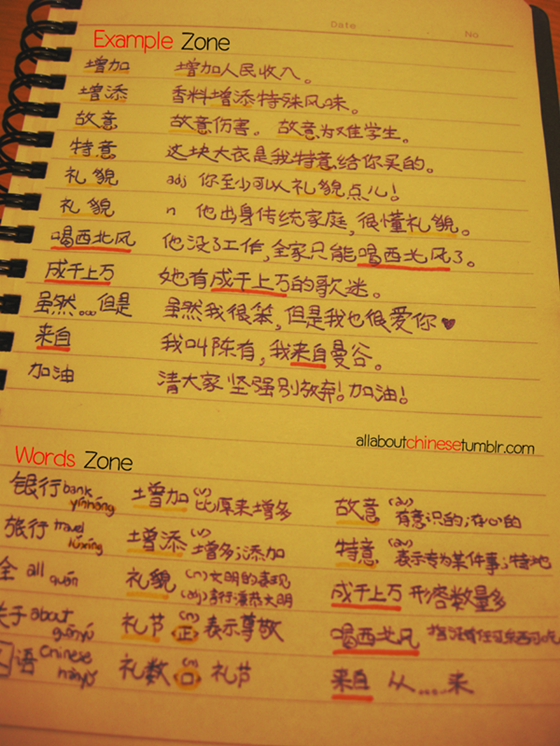 Date
No
Example Zone
增加 增加人民收入。
增添 香料增添特殊风味。
故意 故意伤害。故意为难学生。
特意 这块大衣是我特意给你买的。
礼貌 adj 你至少可以礼貌点儿!
礼貌 n 他出身传统家庭,很懂礼貌。
喝西北风 他没了工作,全家只能喝西北风了。
成千上万 她有成千上万的歌迷。
虽然...但是 虽然我很笨,但是我也很爱你♥
来自 我叫陈有,我来自曼谷。
加油 清大家坚强别放弃!加油!
allaboutchinesetumblr.com
Words Zone
银行 bank yínháng 增加 (v) 比原来增多 故意 (adv) 有意识的;存心的
旅行 travel lǚxíng 增添 (v) 增多;添加 特意 (adv) 表示专为某件事;特地
全 all quán 礼貌 (n) 文明的表现 (adj) 言行谦恭文明 成千上万 形容数量多
关于 about guānyú 礼节 (n) 正 表示尊敬 喝西北风
语 Chinese hànyǔ 礼数 (n) 口 礼节 来自 从....来